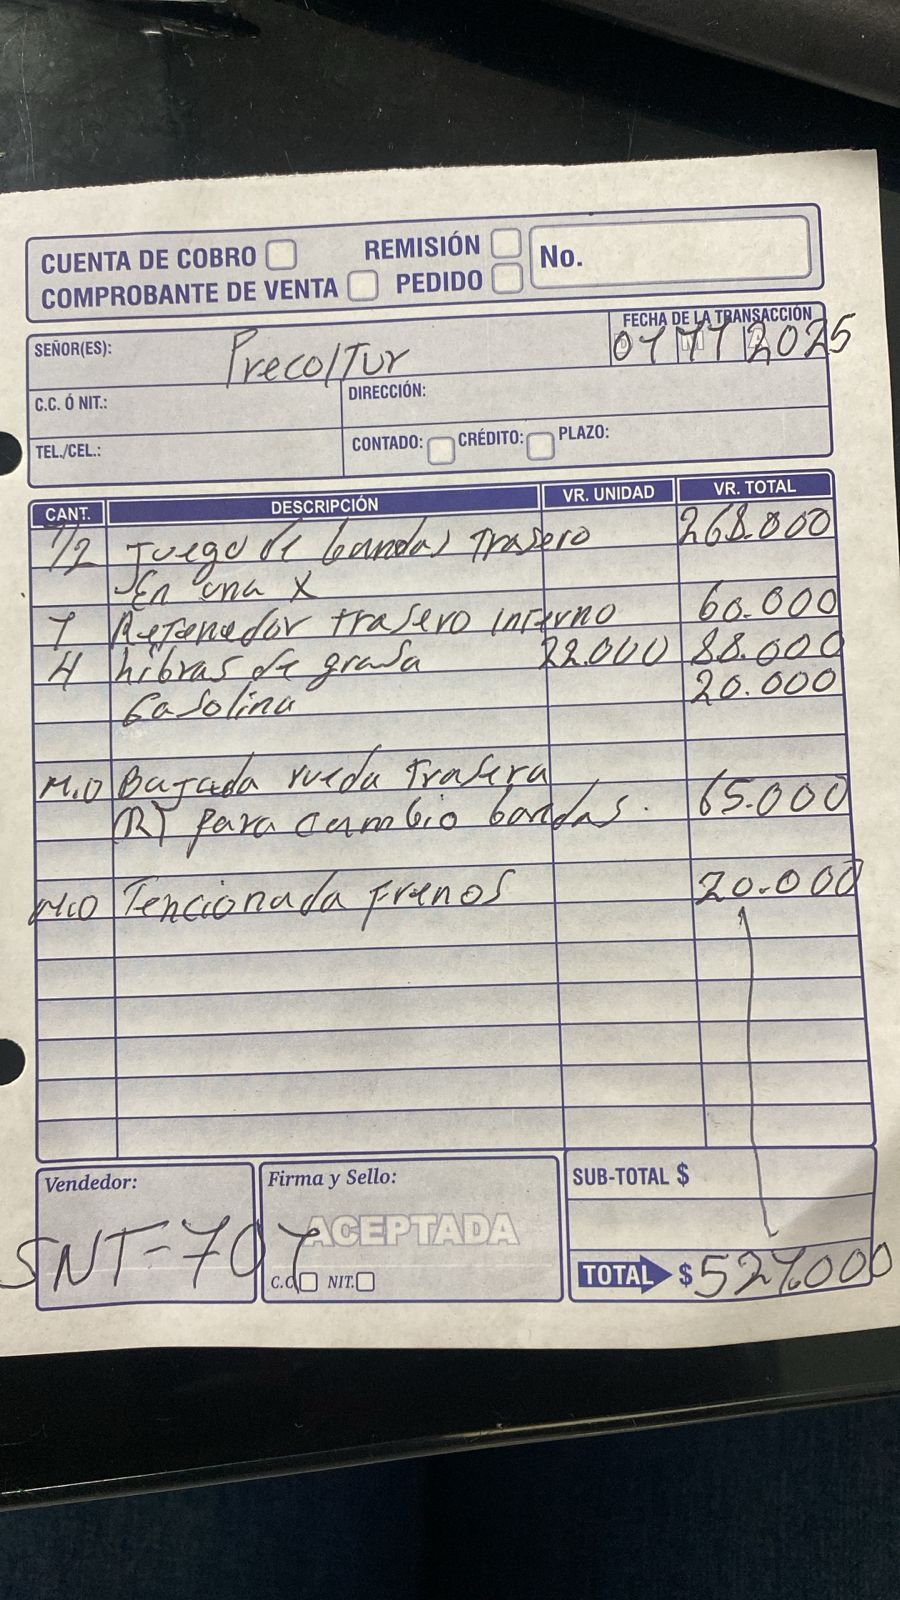 CUENTA DE COBRO REMISIÓN No.
COMPROBANTE DE VENTA PEDIDO
FECHA DE LA TRANSACCIÓN
SEÑOR(ES): Precoltur 07 11 2025
C.C. Ó NIT.: DIRECCIÓN:
TEL./CEL.: CONTADO: CRÉDITO: PLAZO:
CANT. DESCRIPCIÓN VR. UNIDAD VR. TOTAL
1/2 Juego de bandas Trasero 268.000
En una X
1 Retenedor trasero interno 60.000
4 libras de grasa 22.000 88.000
Gasolina 20.000
M.O Bajada rueda Trasera
RT para cambio bandas. 65.000
M.O Tencionada Frenos 20.000
Vendedor: Firma y Sello: SUB-TOTAL $
ACEPTADA
SNT-707
C.C. NIT. TOTAL $ 521.000